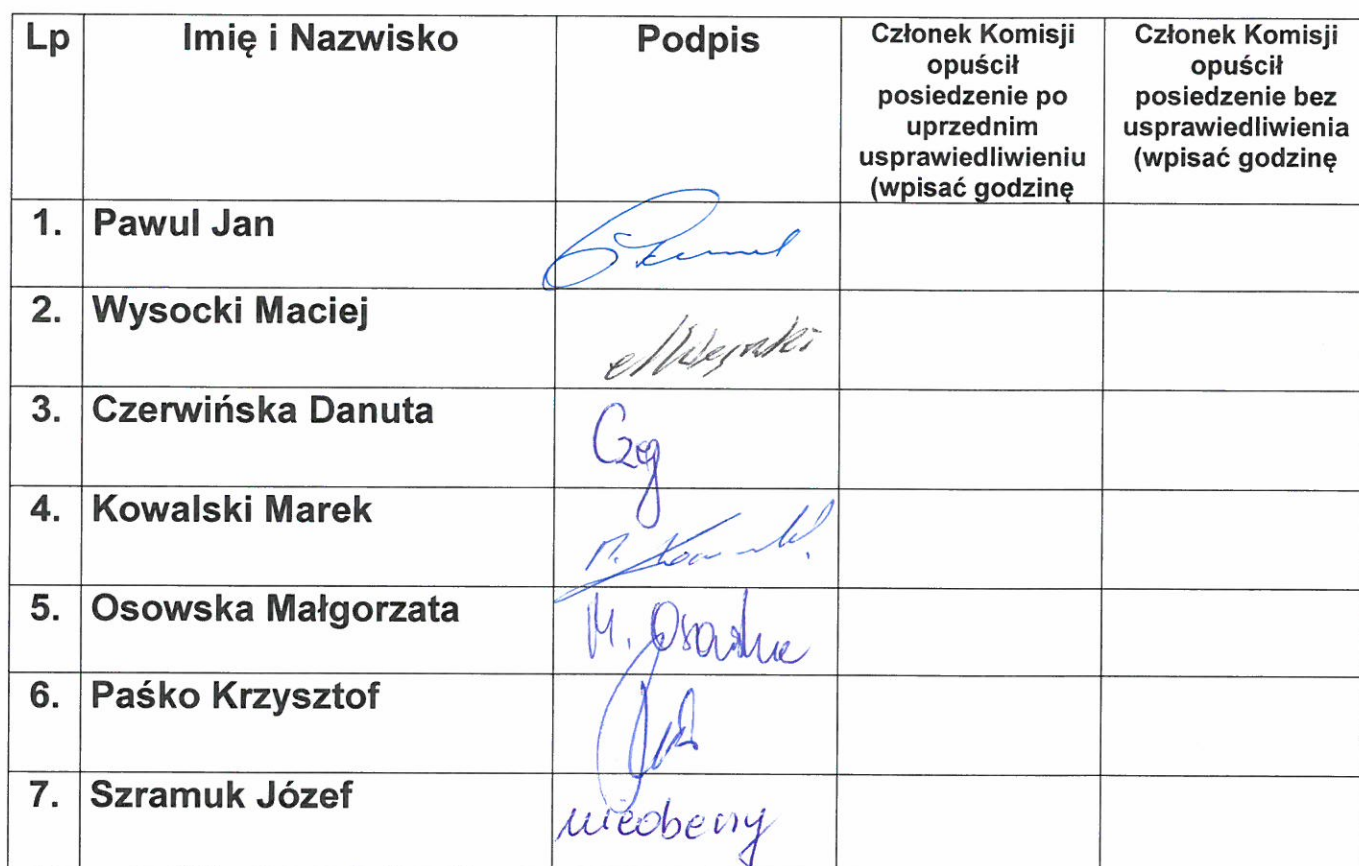 Lp Imię i Nazwisko Podpis Członek Komisji opuścił posiedzenie po uprzednim usprawiedliwieniu (wpisać godzinę Członek Komisji opuścił posiedzenie bez usprawiedliwienia (wpisać godzinę
1. Pawul Jan
2. Wysocki Maciej
3. Czerwińska Danuta
4. Kowalski Marek
5. Osowska Małgorzata M. Osowska
6. Paśko Krzysztof
7. Szramuk Józef nieobecny